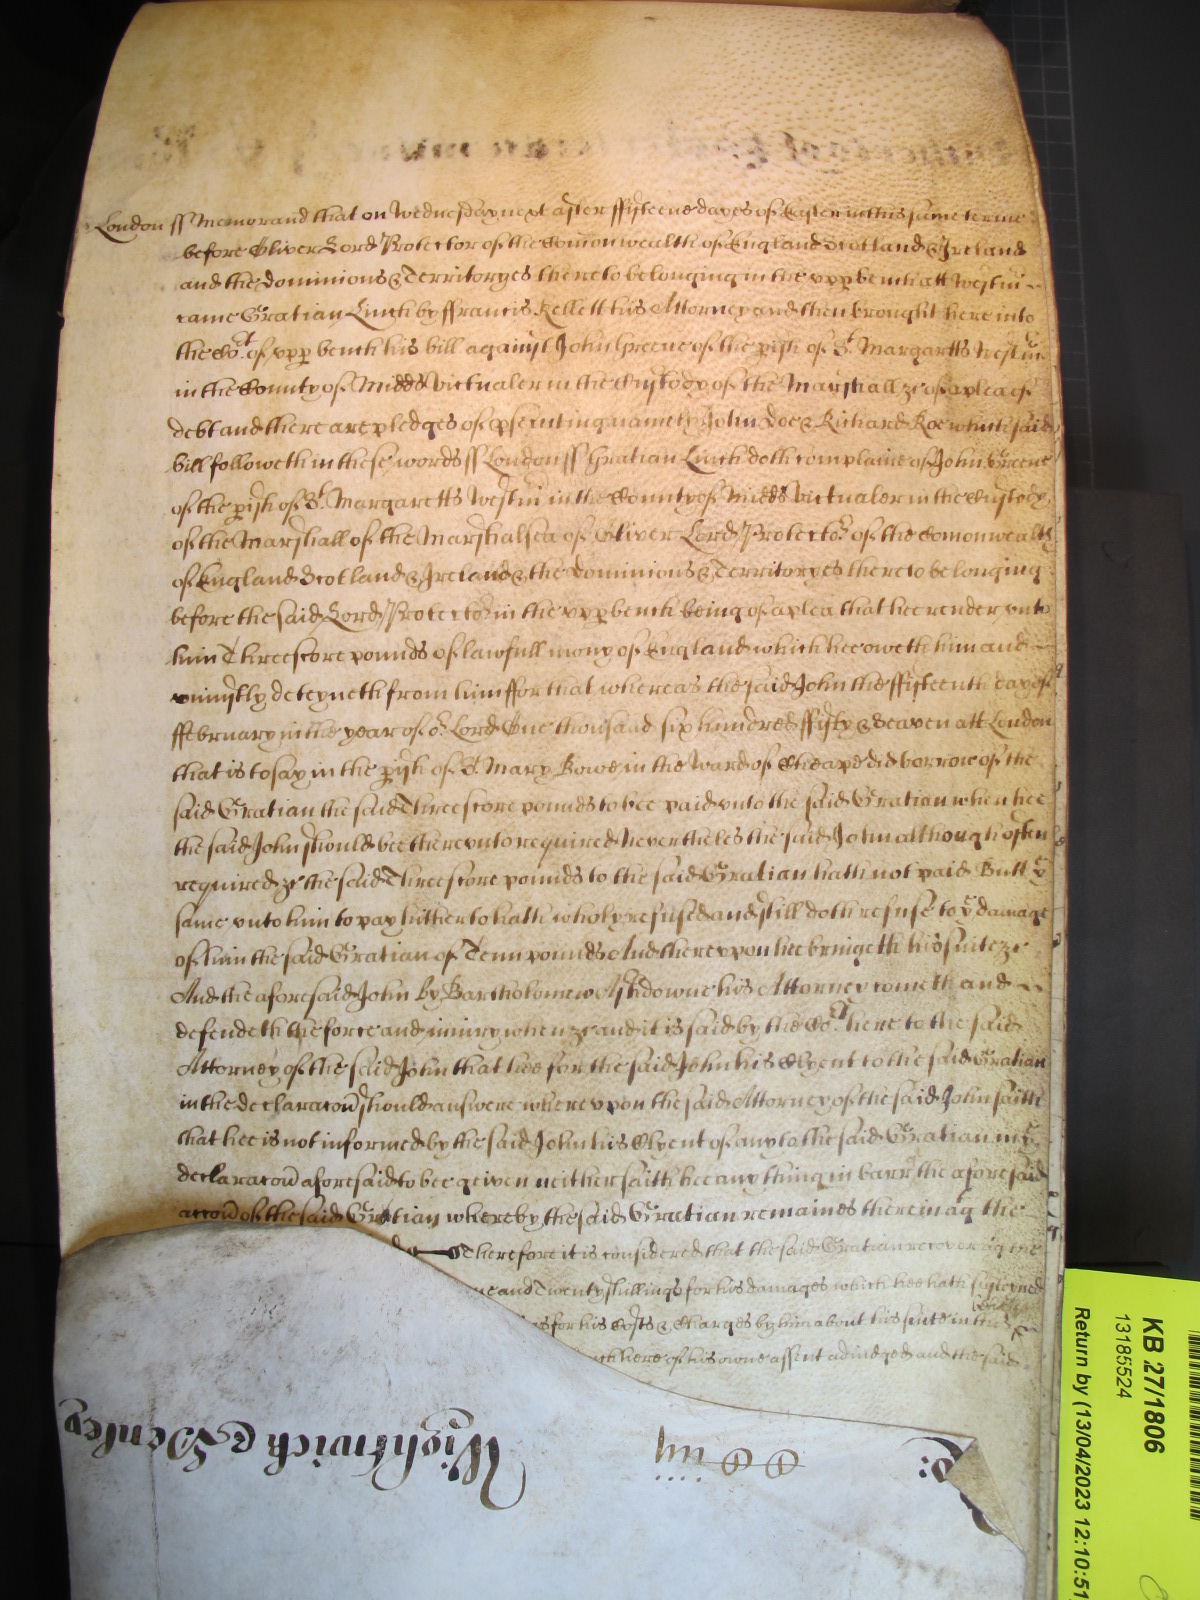 London ss Memorand that on Wednesday next after ffifteene dayes of Easter in this same terme
before Oliver Lord Protector of the Comonwealth of England Scotland & Ireland
and the dominions & Territoryes thereto belonging in the upp bench att Westm
came Gratian Linch by ffrancis Kellett his Attorney and then brought here into
the Cot of upp bench his bill against John Greene of the pish of St Margaretts Westm
in the County of Midds victualer in the Custody of the Marshall &c of a plea of
debt and there are pledges of psecuting namely John Doe & Richard Roe which said
bill followeth in these words ss London ss Gratian Linch doth complaine of John Greene
of the pish of St Margaretts Westm in the County of Midds victualer in the Custody
of the Marshall of the Marshalsea of Oliver Lord Protector of the Comonwealth
of England Scotland & Ireland & the dominions & Territoryes thereto belonging
before the said Lord Protector in the upp bench being of a plea that hee render unto
him Threescore pounds of lawfull mony of England which hee oweth him and
uniustly deteyneth from him ffor that whereas the said John the ffifteenth day of
ffebruary in the year of or Lord One thousand six hundred ffifty & Seaven att London
that is to say in the pish of St Mary Bowe in the Ward of Cheape did borrow of the
said Gratian the said Threescore pounds to bee paid unto the said Gratian when hee
the said John should bee thereunto required Neverthelес the said John although often
required &c the said Threescore pounds to the said Gratian hath not paid Butt ye
same unto him to pay hitherto hath wholy refused and still doth refuse to ye damage
of him the said Gratian of Tenn pounds And thereupon hee bringeth his suite &c
And the aforesaid John by Bartholomew Ashdowne his Attorney cometh and
defendeth the force and iniury when &c and it is said by the Cot here to the said
Attorney of the said John that hee for the said John his Clyent to the said Gratian
in the declaracon should answere whereupon the said Attorney of the said John saith
that hee is not informed by the said John his Clyent of any to the said Gratian in ye
declaracon aforesaid to bee given neither saith hee any thing in barr the aforesaid
accon of the said Gratian whereby the said Gratian remaines therein agt the
Therefore it is considered that the said Gratian recover agt the
and Twenty shillings for his damages which hee hath susteyned
for his Costs & Charges by him about his suite in this
here of his owne assent adiudged and the said
Wightwick & Henley
KB 27/1806
13185524
Return by (13/04/2023 12:10:51